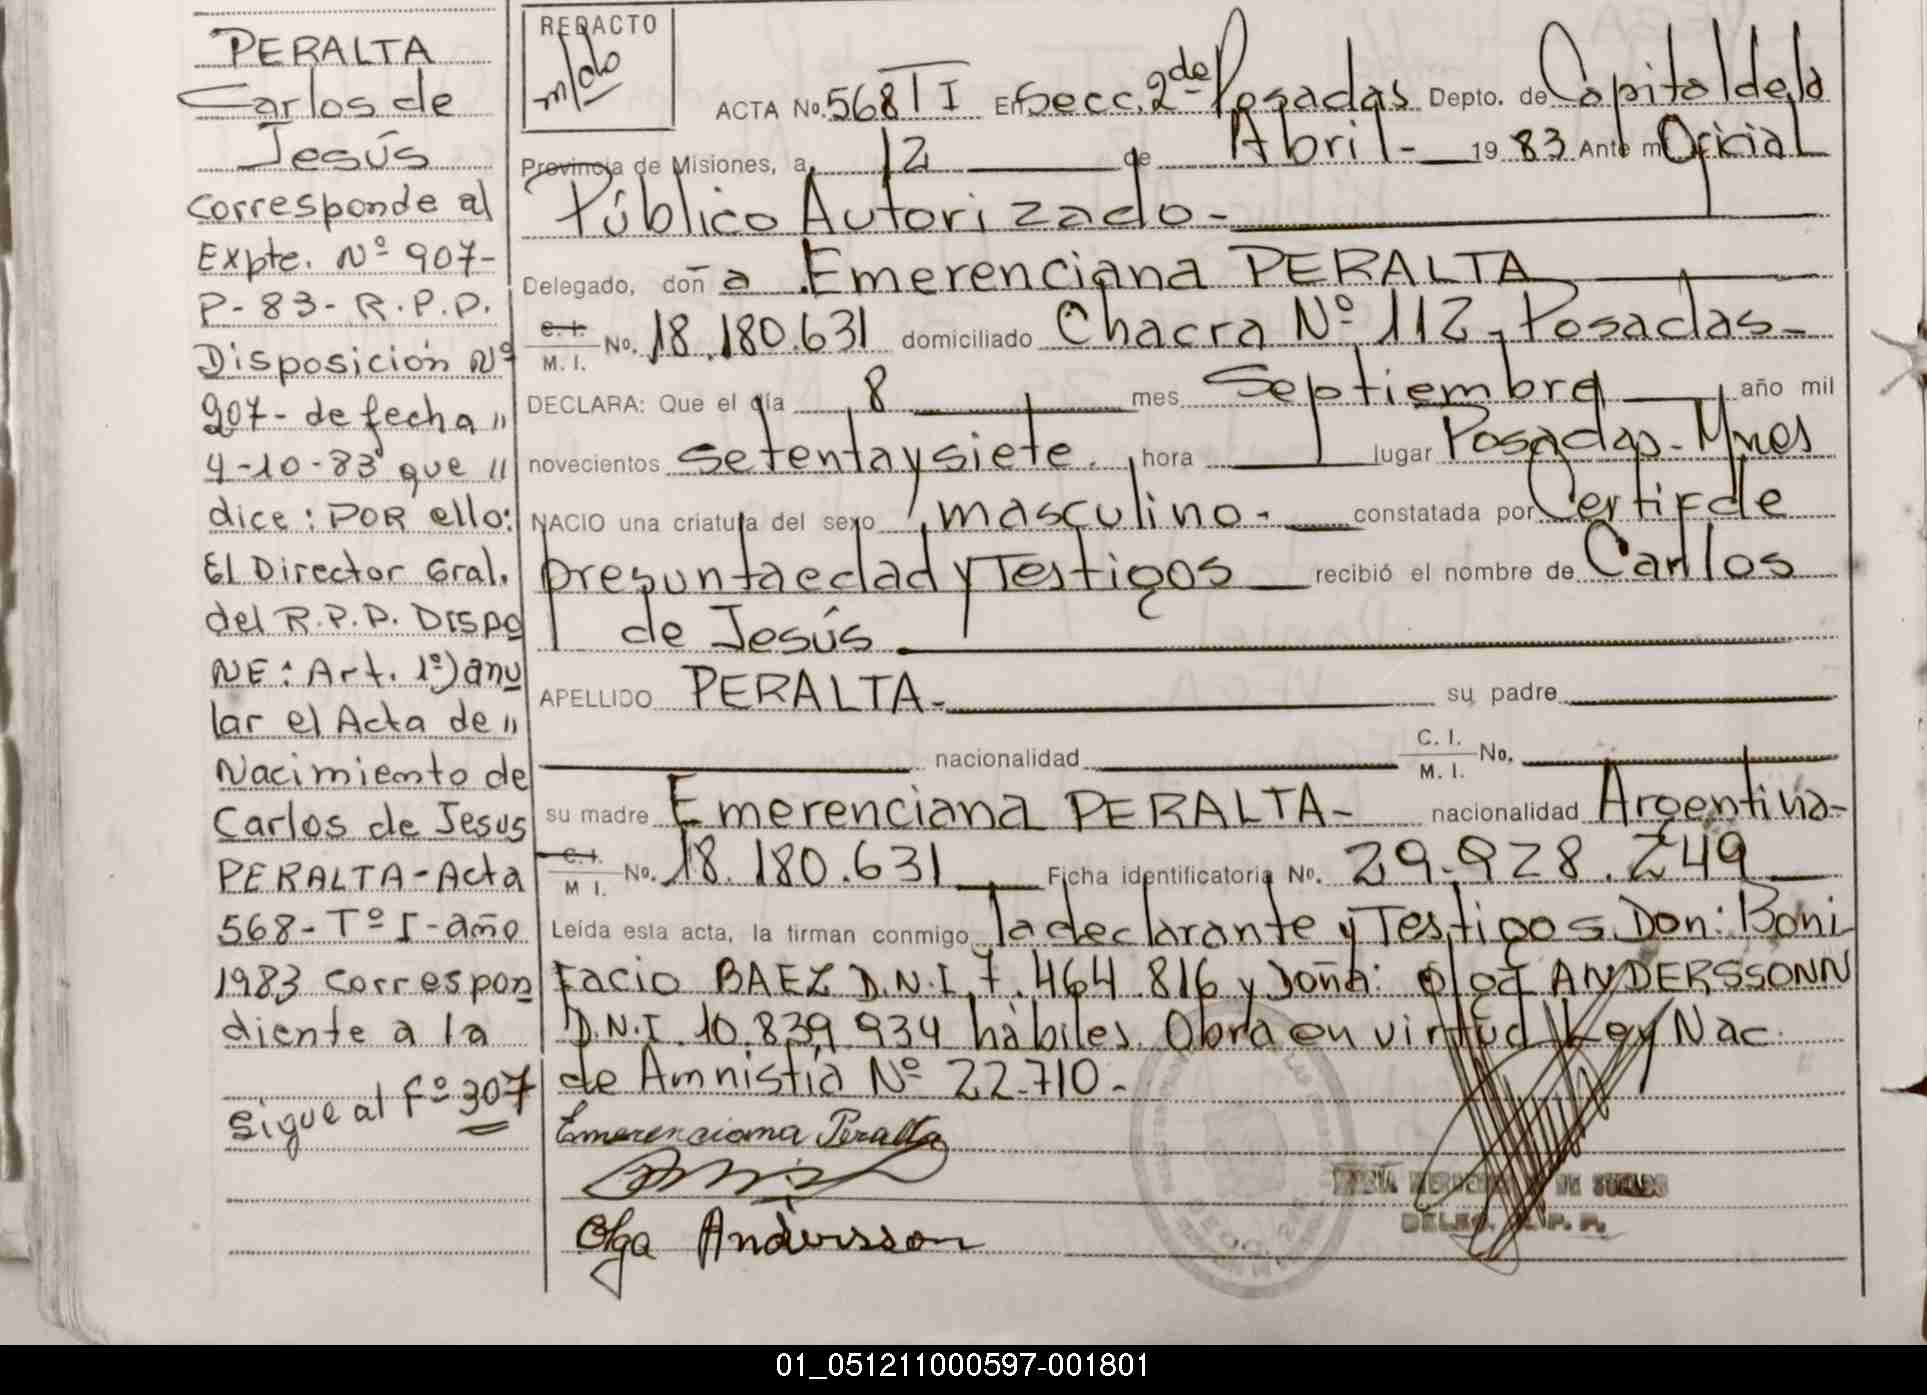 PERALTA
Carlos de
Jesús
Corresponde al
Expte. Nº 907-
P-83-R.P.P.
Disposición Nº
907- de fecha "
4-10-83 que "
dice: POR ello:
El Director Gral.
del R.P.P. DISPO
NE: Art. 1º) anu
lar el Acta de "
Nacimiento de
Carlos de Jesus
PERALTA-Acta
568-Tº I-año
1983 correspon
diente a la
sigue al Fº 307
REDACTO
ACTA No. 568 T I En Secc. 2da Posadas Depto. de Capital de la
Provincia de Misiones, a 12 de Abril- 19 83 Ante mí Oficial
Público Autorizado-
Delegado, doñ a Emerenciana PERALTA
C. I. / M. I. No. 18.180.631 domiciliado Chacra Nº 112, Posadas-
DECLARA: Que el día 8 mes Septiembre año mil
novecientos setentaysiete. hora lugar Posadas-Mnes
NACIO una criatura del sexo masculino- constatada por Certif de
presunta edad y Testigos recibió el nombre de Carlos
de Jesús
APELLIDO PERALTA- su padre
nacionalidad C. I. / M. I. No.
su madre Emerenciana PERALTA- nacionalidad Argentina-
C. I. / M I. No. 18.180.631 Ficha identificatoria No. 29.928.249
Leída esta acta, la firman conmigo la declarante y Testigos Don: Boni
facio BAEZ D.N.I. 7.464.816 y Doña: Olga ANDERSSONN
D.N.I. 10.839.934 hábiles. Obra en virtud Ley Nac.
de Amnistía Nº 22.710-
Emerenciana Peralta
Olga Andersson
DE SUELDO
DELEG. R. P. P.
01_051211000597-001801